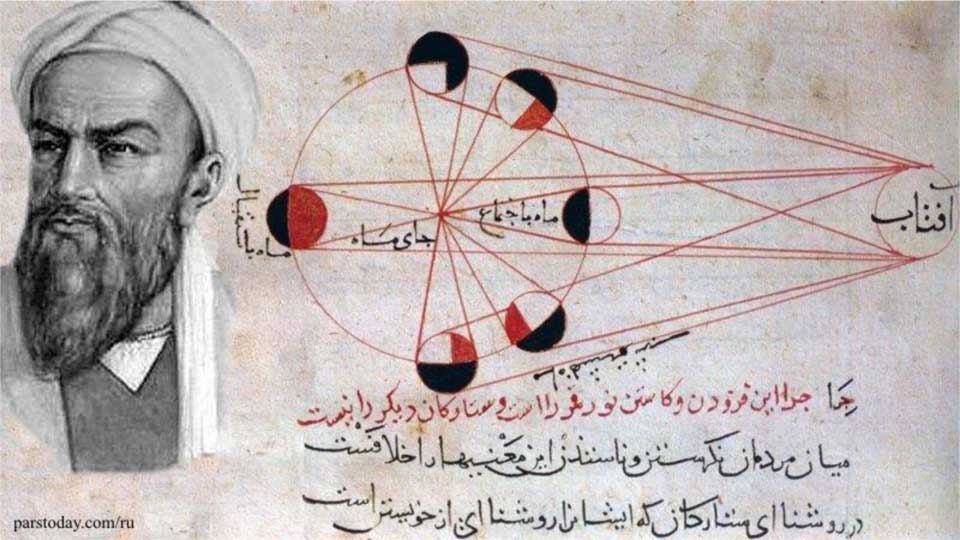 افتاب
ماه باجتماع
جای ماه
ماه باستقبال
جرا این فزودن و کاستن نور قمر را است و ستارکان دیکر را نیست
میان مردمان نکرستن این معنیها را خلافست
در روشنا ای ستارکان که ایشانرا روشنا ای از خویشتن است
parstoday.com/ru